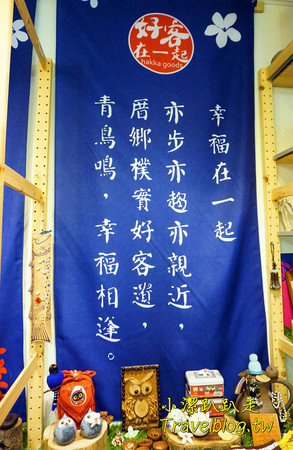 好客
在一起
hakka goods
幸福在一起
亦步亦趨亦親近，
厝鄉樸實好客道，
青鳥鳴，幸福相逢。
小潔趴趴走
Travelblog.tw